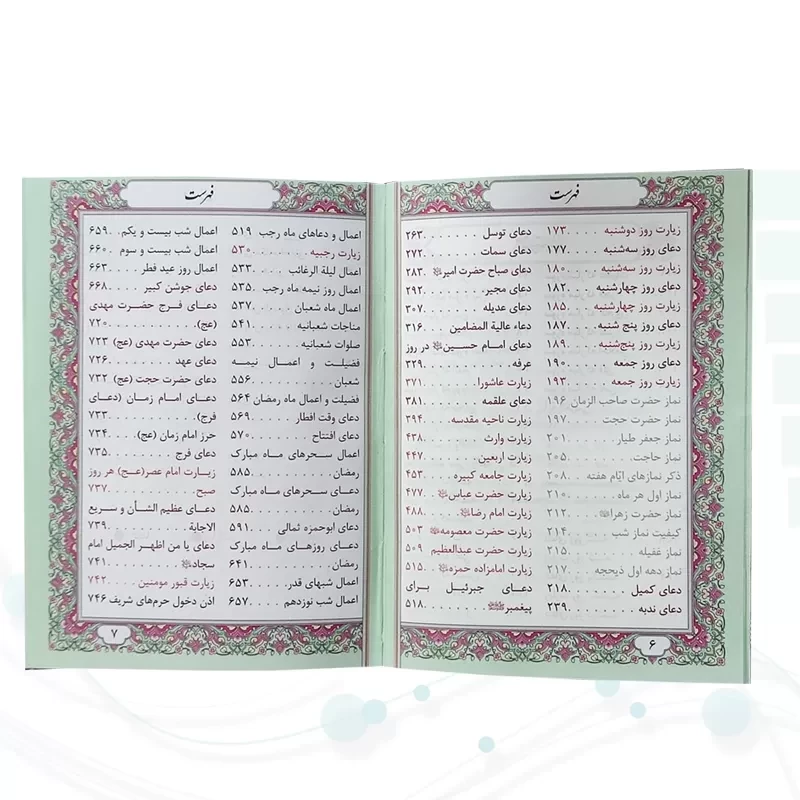 فهرست
زیارت روز دوشنبه . . . . ۱۷۳
دعای روز سه‌شنبه . . . . ۱۷۷
زیارت روز سه‌شنبه . . . . ۱۸۰
دعای روز چهارشنبه . . . . ۱۸۲
زیارت روز چهارشنبه . . . . ۱۸۵
دعای روز پنج شنبه . . . . ۱۸۷
زیارت روز پنج‌شنبه . . . . ۱۸۹
دعای روز جمعه . . . . ۱۹۰
زیارت روز جمعه . . . . ۱۹۳
نماز حضرت صاحب الزمان ۱۹۶
نماز حضرت حجت . . . . ۱۹۷
نماز جعفر طیار . . . . ۲۰۱
نماز حاجت . . . . ۲۰۵
ذکر نمازهای ایّام هفته . . ۲۰۸
نماز اول هر ماه . . . . ۲۱۰
نماز حضرت زهرا . . . . ۲۱۲
کیفیت نماز شب . . . . ۲۱۴
نماز غفیله . . . . ۲۱۵
نماز دهه اول ذیحجه . . . . ۲۱۷
دعای کمیل . . . . ۲۱۸
دعای ندبه . . . . ۲۳۹
دعای توسل . . . . ۲۶۳
دعای سمات . . . . ۲۷۲
دعای صباح حضرت امیر . ۲۸۳
دعای مجیر . . . . ۲۹۲
دعای عدیله . . . . ۳۰۷
دعاء عالیة المضامین . . . . ۳۱۶
دعای امام حسین در روز
عرفه . . . . ۳۲۹
زیارت عاشورا . . . . ۳۷۱
دعای علقمه . . . . ۳۸۱
زیارت ناحیه مقدسه . . . . ۳۹۴
زیارت وارث . . . . ۴۳۸
زیارت اربعین . . . . ۴۴۷
زیارت جامعه کبیره . . . . ۴۵۳
زیارت حضرت عباس . . ۴۷۷
زیارت امام رضا . . . . ۴۸۸
زیارت حضرت معصومه ۵۰۳
زیارت حضرت عبدالعظیم ۵۰۹
زیارت امامزاده حمزه . . ۵۱۵
دعای جبرئیل برای
پیغمبر . . . . ۵۱۸
۶
فهرست
اعمال و دعاهای ماه رجب ۵۱۹
زیارت رجبیه . . . . ۵۳۰
اعمال لیلة الرغائب . . . . ۵۳۳
اعمال روز نیمه ماه رجب . ۵۳۵
اعمال ماه شعبان . . . . ۵۳۷
مناجات شعبانیه . . . . ۵۴۱
صلوات شعبانیه . . . . ۵۵۳
فضیلت و اعمال نیمه
شعبان . . . . ۵۵۶
فضیلت و اعمال ماه رمضان ۵۶۴
دعای وقت افطار . . . . ۵۶۹
دعای افتتاح . . . . ۵۷۰
اعمال سحرهای ماه مبارک
رمضان . . . . ۵۸۵
دعای سحرهای ماه مبارک
رمضان . . . . ۵۸۵
دعای ابوحمزه ثمالی . . . . ۵۹۱
دعای روزهای ماه مبارک
رمضان . . . . ۶۴۱
اعمال شبهای قدر . . . . ۶۵۳
اعمال شب نوزدهم . . . . ۶۵۷
اعمال شب بیست و یکم . . ۶۵۹
اعمال شب بیست و سوم . . ۶۶۰
اعمال روز عید فطر . . . . ۶۶۳
دعای جوشن کبیر . . . . ۶۶۸
دعای فرج حضرت مهدی
(عج) . . . . ۷۲۰
دعای حضرت مهدی (عج) ۷۲۳
دعای عهد . . . . ۷۲۶
دعای حضرت حجت (عج) ۷۳۲
دعای امام زمان (دعای
فرج) . . . . ۷۳۳
حرز امام زمان (عج) . . . . ۷۳۴
دعای فرج . . . . ۷۳۵
زیارت امام عصر(عج) هر روز
صبح . . . . ۷۳۷
دعای عظیم الشأن و سریع
الاجابة . . . . ۷۳۹
دعای یا من اظهر الجمیل امام
سجاد . . . . ۷۴۱
زیارت قبور مومنین . . . . ۷۴۲
اذن دخول حرم‌های شریف ۷۴۶
۷